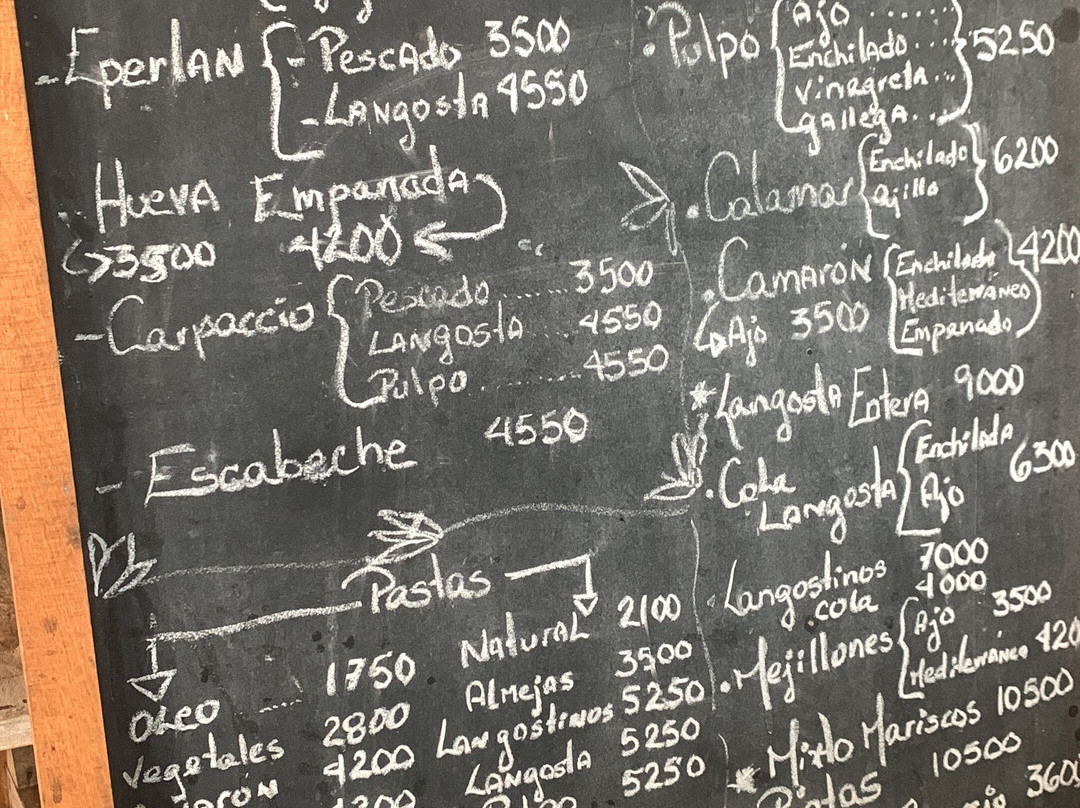 - Eperlan { - Pescado 3500
- Langosta 4550
Hueva Empanada
3500 4200
- Carpaccio { Pescado ...... 3500
Langosta ... 4550
Pulpo ......... 4550
- Escabeche 4550
Pastas
Oleo ..... 1750
Vegetales 2800
4200
Natural 2100
Almejas 3500
Langostinos 5250
Langosta 5250
5250
. Pulpo { Ajo ......
Enchilado ....
Vinagreta ...
gallega ... } 5250
. Calamar { Enchilado
ajillo } 6200
. Camarón { Enchilado
Mediterráneo
Empanado } 4200
Ajo 3500
* Langosta Entera 9000
. Cola Langosta { Enchilada
Ajo 6300
. Langostinos 7000
. cola 4000
. Mejillones { Ajo 3500
Mediterráneo 420
* Mixto Mariscos 10500
10500
360